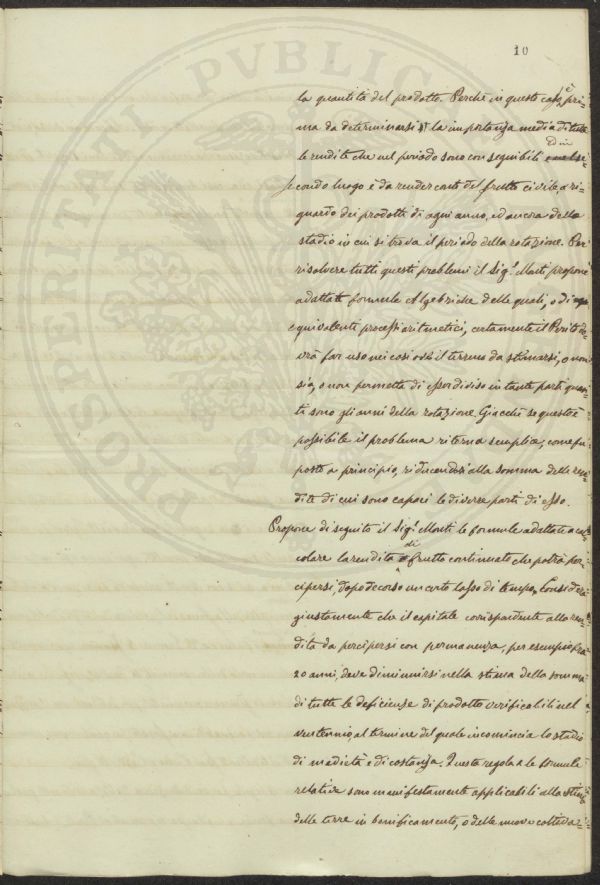 10
PROSPERITATI PVBLICAE
la quantità del prodotto. Perchè in questo caso è pri=
ma da determinarsi la importanza media di tutte
le rendite che nel periodo sono conseguibili Ed in
secondo luogo è da render conto del frutto civile, a ri=
guardo dei prodotti di ogni anno, ed ancora dello
stadio in cui si trova il periodo della rotazione. Per
risolvere tutti questi problemi il Sig.r Monti propone
adattate formule Algebriche delle quali, o di
equivalenti processi aritmetici, certamente il Perito do=
vrà far uso nei casi ove il terreno da stimarsi, o non
sia, o non permetta di esser diviso in tante parti quan=
ti sono gli anni della rotazione. Giacchè se questo è
possibile il problema ritorna semplice, come fu
posto a principio, riducendosi alla somma delle ren=
dite di cui sono capaci le diverse parti di esso.
Propone di seguito il Sig.r Monti le formule adattate a cal=
colare la rendita di frutto continuato che potrà per=
cipersi, dopo decorso un certo lasso di tempo. Considera
giustamente che il capitale corrispondente alla ren=
dita da percipersi con permanenza, per esempio fra
20 anni, deve diminuirsi nella stima della somma
di tutte le deficienze di prodotto verificabili nel
ventennio al termine del quale incomincia lo stadio
di medietà e di costanza. Questa regola e le formule
relative sono manifestamente applicabili alla stima
delle terre in bonificamento, o delle nuove coltiva=